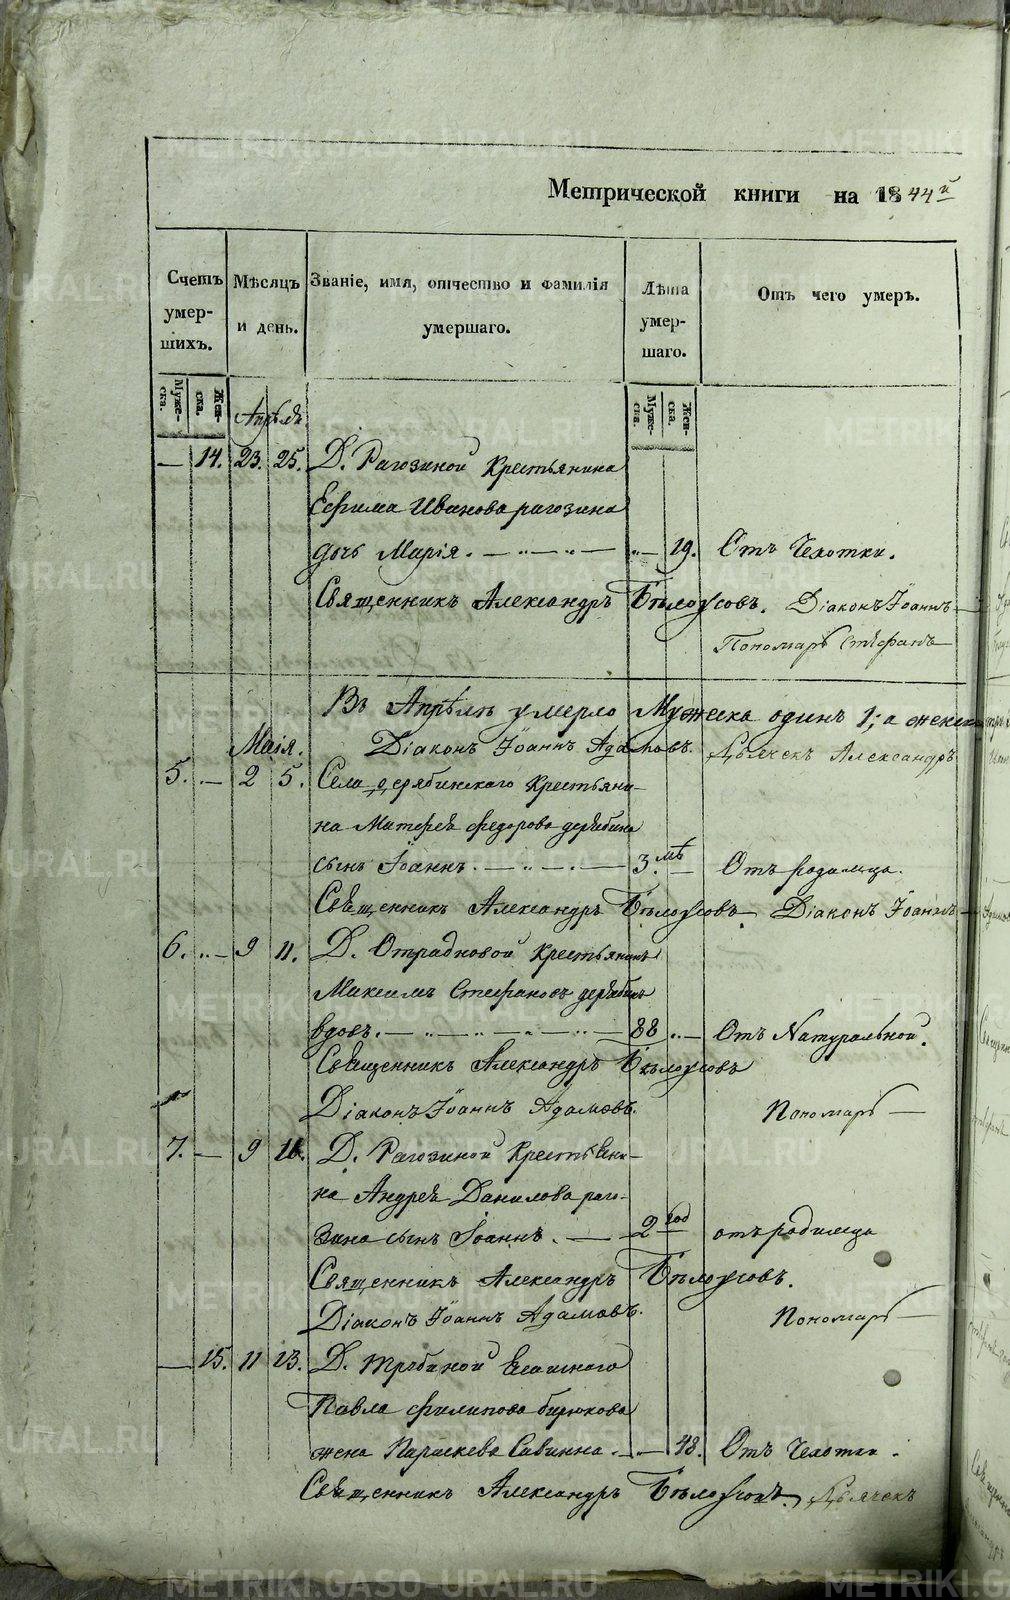 Метрической книги на 1844й
Счетъ умер-шихъ.
Мѣсяцъ и день.
Званіе, имя, отчество и фамилія умершаго.
Лѣта умер-шаго.
Отъ чего умеръ.
Муже-ска. Жен-ска.
Муже-ска. Жен-ска.
Апрѣля
— 14. 23. 25. Д. Рагозиной Крестьянина
Ефима Иванова рагозина
дочь Марія. — 19. Отъ Чехотки.
Священникъ Александръ Бѣлоусовъ. Діаконъ Іоаннъ
Пономарь Стефанъ
Въ Апрѣлѣ умерло Мужеска одинъ 1; а женска
Маія. Діаконъ Іоаннъ Адамовъ. Дьячекъ Александръ
5. — 2 5. Села Крестьяни-
на Матфея федорова дерябина
сынъ Іоаннъ. — 3. мѣ — Отъ родимца.
Священникъ Александръ Бѣлоусовъ Діаконъ Іоаннъ
6. — 9 11. Д. Отрадновой Крестьянинъ
Максимъ Стефановъ дерябинъ
вдовъ. — 88 — Отъ Натуральной.
Священникъ Александръ Бѣлоусовъ
Діаконъ Іоаннъ Адамовъ. Пономарь
7. — 9 Д. Рагозиной Крестьяни-
на Андрея Данилова раго-
зина сынъ Іоаннъ. — 2 год отъ родимца
Священникъ Александръ Бѣлоусовъ.
Діаконъ Іоаннъ Адамовъ. Пономарь
— 15. 11 13. Д.
Павла филипова бирюкова
жена Параскева Савинна. — 48. Отъ Чехотки.
Священникъ Александръ Бѣлоусовъ. Дьячекъ
METRIKI.GASO-URAL.RU